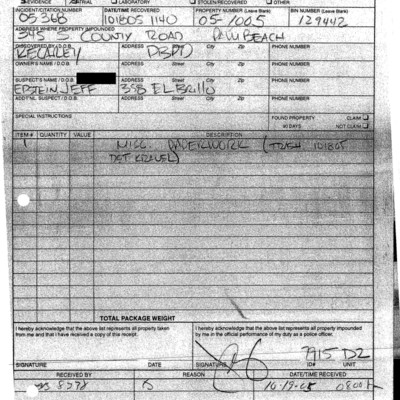 EVIDENCE TRIAL LABORATORY STOLEN RECOVERED OTHER
INCIDENT/CITATION NUMBER DATE/TIME RECOVERED PROPERTY NUMBER (Leave Blank) BIN NUMBER (Leave Blank)
05-368 101805 1140 05-1005 129442
ADDRESS WHERE PROPERTY IMPOUNDED
345 S. COUNTY ROAD PALM BEACH
DISCOVERED BY / D.O.B. ADDRESS Street City Zip PHONE NUMBER
RECAREY PBPD
OWNER'S NAME / D.O.B. ADDRESS Street City Zip PHONE NUMBER
SUSPECT'S NAME / D.O.B. ADDRESS Street City Zip PHONE NUMBER
EPSTEIN, JEFF 358 EL BRILLO
ADDT'NL SUSPECT / D.O.B. ADDRESS Street City Zip PHONE NUMBER
SPECIAL INSTRUCTIONS FOUND PROPERTY CLAIM
90 DAYS NOT CLAIM
ITEM # QUANTITY VALUE DESCRIPTION
1 MISC. PAPERWORK (TRASH 101805
DET KRAUEL)
TOTAL PACKAGE WEIGHT
I hereby acknowledge that the above list represents all property taken
from me and that I have received a copy of this receipt.
I hereby acknowledge that the above list represents all property impounded
by me in the official performance of my duty as a police officer.
7915 D2
SIGNATURE DATE SIGNATURE ID# UNIT
RECEIVED BY REASON DATE/TIME RECEIVED
8378 10-19-05 0800